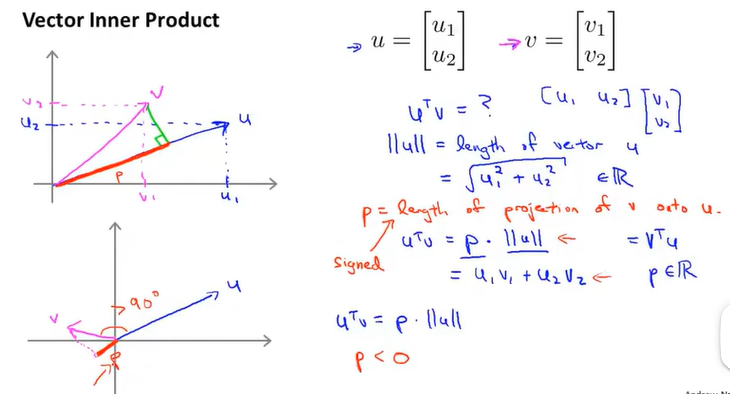 Vector Inner Product
→ u = [u₁ u₂] → v = [v₁ v₂]
v₂
v
u₂
u
p
v₁
u₁
uᵀv = ? [u₁ u₂] [v₁ v₂]
||u|| = length of vector u
= √u₁² + u₂² ∈ ℝ
p = length of projection of v onto u.
signed
uᵀv = p · ||u|| ← = vᵀu
= u₁v₁ + u₂v₂ ← p ∈ ℝ
90°
u
v
p
uᵀv = p · ||u||
p < 0